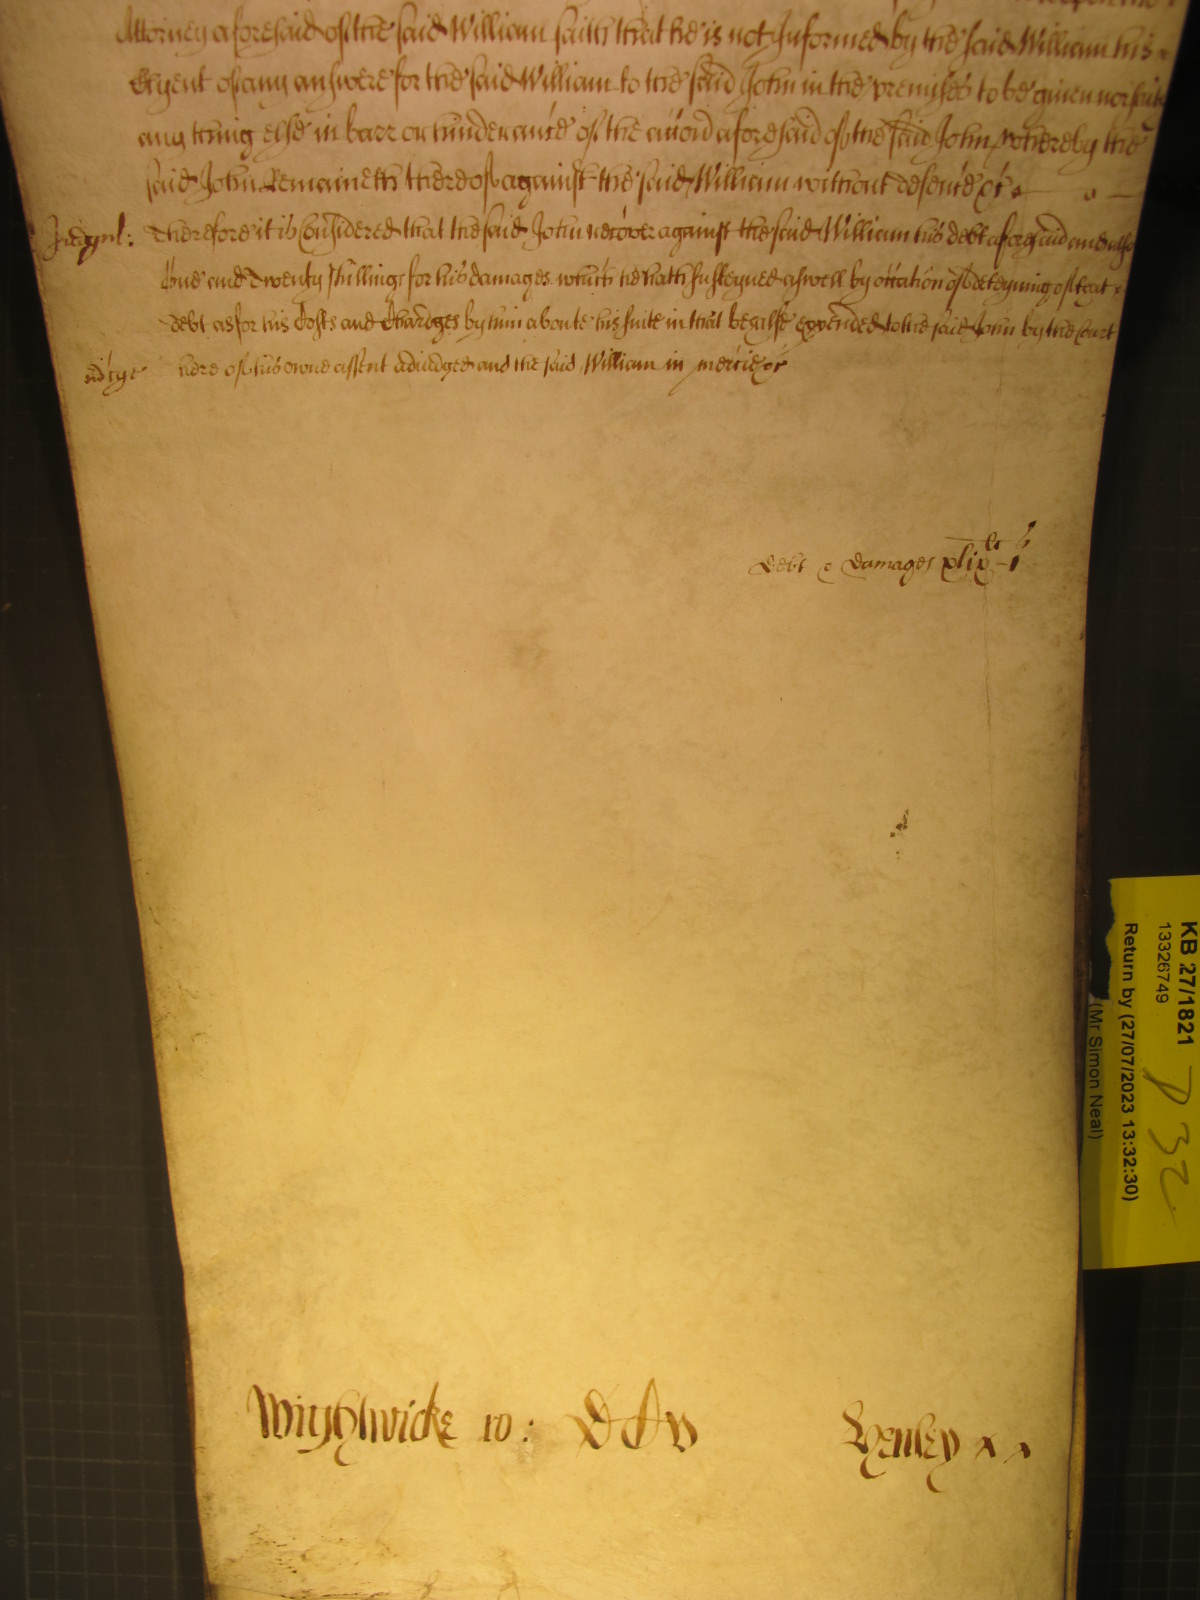 Attorney aforesaid of the said William saith that he is not Informed by the said William his
Clyent of any answere for the said William to the said John in the premises to be given nor saith
any thing else in barr or hinderance of the accion aforesaid of the said John whereby the
said John Remaineth thereof against the said William without defence &c
Judgmt: Therefore it is Considered that the said John recover against the said William his debt aforesaid and also
One and Twenty shillings for his damages which he hath susteyned aswell by occation of deteyning of that
debt as for his Costs and Charges by him aboute his suite in that behalfe expended to the said John by the Court
mcye here of his owne assent adiudged and the said William in mercie &c
debt & damages xlix li i s
Wightwicke ro:
Henley x x
KB 27/1821
13326749
Return by (27/07/2023 13:32:30)
(Mr Simon Neal)